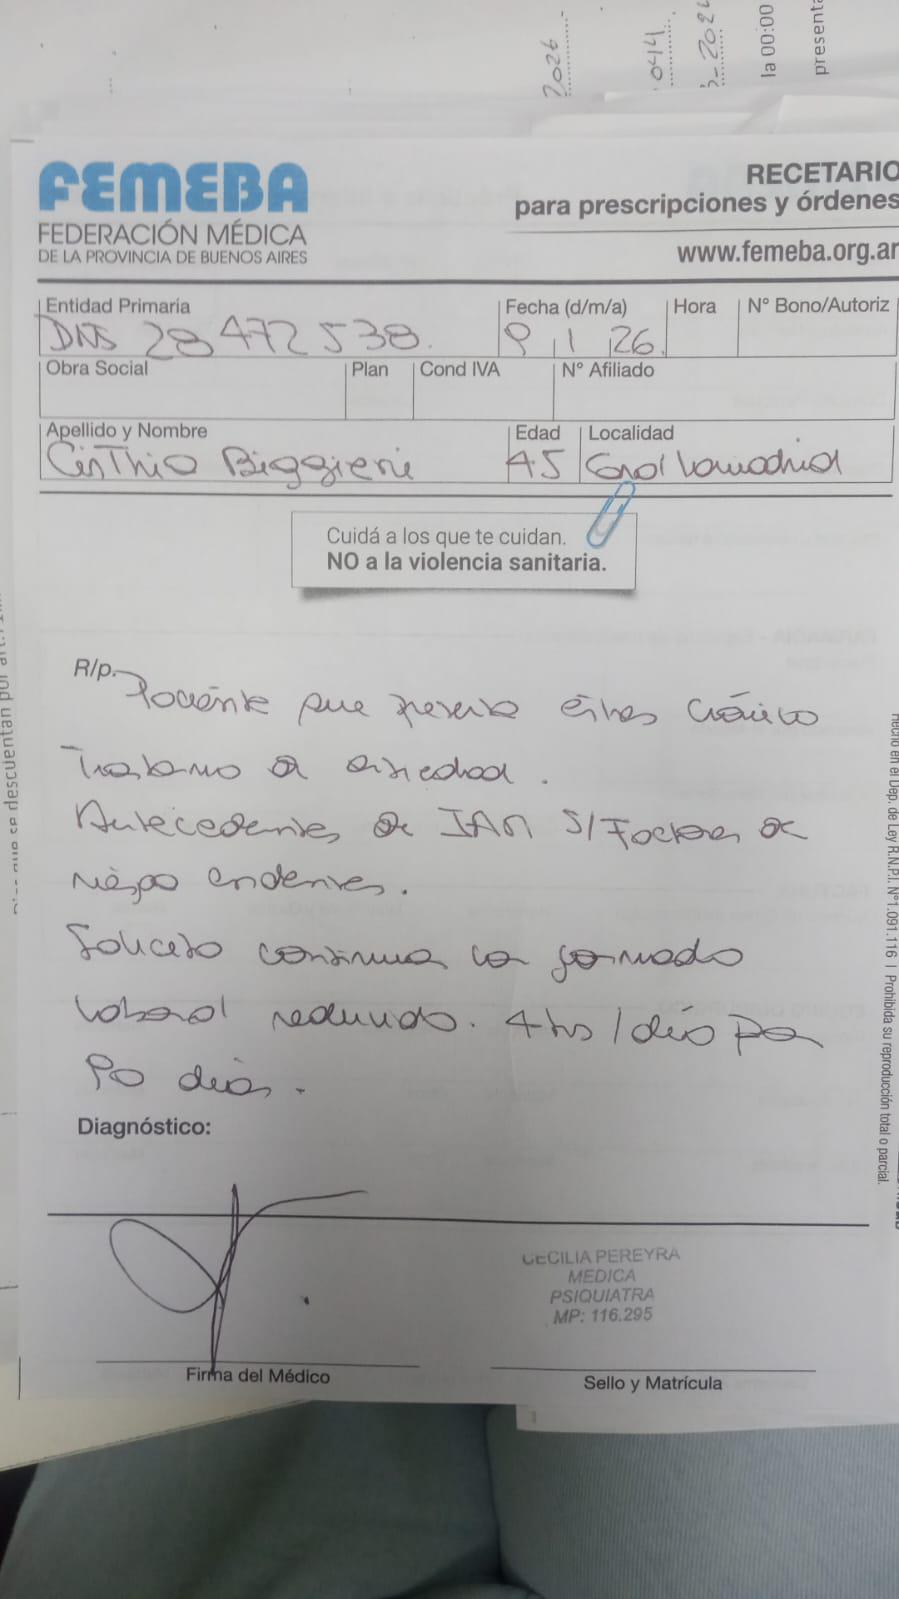 2026
0414
2024
la 00:00
presenta
FEMEBA
FEDERACIÓN MÉDICA
DE LA PROVINCIA DE BUENOS AIRES
RECETARIO
para prescripciones y órdenes
www.femeba.org.ar
Entidad Primaria
DNI 28472538.
Fecha (d/m/a)
9 1 26.
Hora
N° Bono/Autoriz
Obra Social
Plan
Cond IVA
N° Afiliado
Apellido y Nombre
Cinthia Biggieri
Edad
45
Localidad
Gral Lamadrid
Cuidá a los que te cuidan.
NO a la violencia sanitaria.
R/p.
Paciente que presenta estres crónico
Trastorno de ansiedad.
Antecedentes de IAM S/Factores de
riesgo evidentes.
Solicito continuar con jornada
laboral reducida. 4 hs/día por
90 días.
Diagnóstico:
CECILIA PEREYRA
MEDICA
PSIQUIATRA
MP: 116.295
Firma del Médico
Sello y Matrícula
Hecho en el Dep. de Ley R.N.P.I. N°1.091.116 | Prohibida su reproducción total o parcial.
que se descuentan por art.